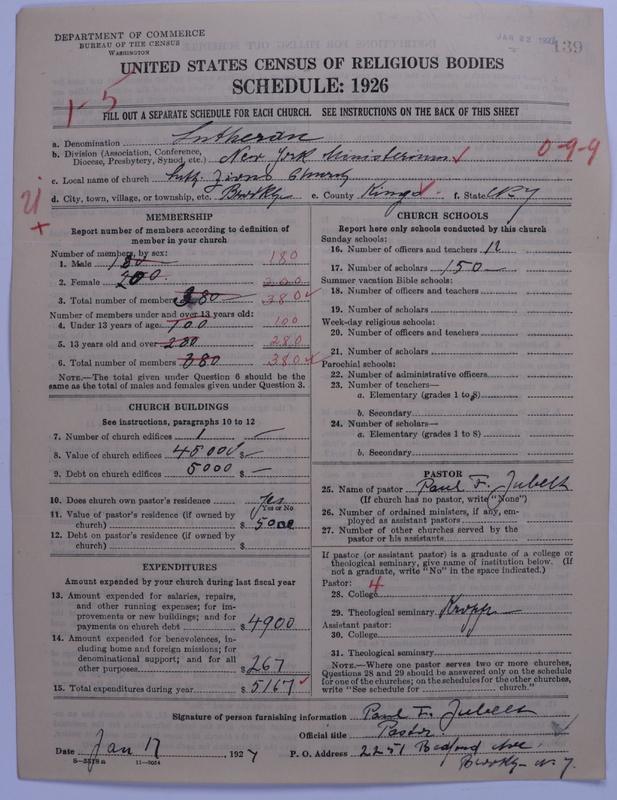 DEPARTMENT OF COMMERCE
BUREAU OF THE CENSUS
WASHINGTON
JAN 22 1927
139
UNITED STATES CENSUS OF RELIGIOUS BODIES
SCHEDULE: 1926
1-5
FILL OUT A SEPARATE SCHEDULE FOR EACH CHURCH. SEE INSTRUCTIONS ON THE BACK OF THIS SHEET
a. Denomination Lutheran
b. Division (Association, Conference, Diocese, Presbytery, Synod, etc.) New York Ministerium 0-9-9
c. Local name of church Luth. Zions Church
d. City, town, village, or township, etc. Brooklyn e. County Kings f. State N.Y
MEMBERSHIP
Report number of members according to definition of
member in your church
Number of members, by sex:
1. Male 180 180
2. Female 200 200
3. Total number of members 380 380
Number of members under and over 13 years old:
4. Under 13 years of age 100 100
5. 13 years old and over 280 280
6. Total number of members 380 380
NOTE.—The total given under Question 6 should be the
same as the total of males and females given under Question 3.
CHURCH BUILDINGS
See instructions, paragraphs 10 to 12
7. Number of church edifices 1
8. Value of church edifices 45000 $
9. Debt on church edifices 5000 $
10. Does church own pastor's residence yes
Yes or No
11. Value of pastor's residence (if owned by
church) $ 5000
12. Debt on pastor's residence (if owned by
church) $
EXPENDITURES
Amount expended by your church during last fiscal year
13. Amount expended for salaries, repairs,
and other running expenses; for im-
provements or new buildings; and for
payments on church debt $ 4900
14. Amount expended for benevolences, in-
cluding home and foreign missions; for
denominational support; and for all
other purposes $ 267
15. Total expenditures during year $ 5167
CHURCH SCHOOLS
Report here only schools conducted by this church
Sunday schools:
16. Number of officers and teachers 12
17. Number of scholars 150
Summer vacation Bible schools:
18. Number of officers and teachers
19. Number of scholars
Week-day religious schools:
20. Number of officers and teachers
21. Number of scholars
Parochial schools:
22. Number of administrative officers
23. Number of teachers—
a. Elementary (grades 1 to 8)
b. Secondary
24. Number of scholars—
a. Elementary (grades 1 to 8)
b. Secondary
PASTOR
25. Name of pastor Paul F. Jubelt
(If church has no pastor, write "None")
26. Number of ordained ministers, if any, em-
ployed as assistant pastors
27. Number of other churches served by the
pastor or his assistants
If pastor (or assistant pastor) is a graduate of a college or
theological seminary, give name of institution below. (If
not a graduate, write "No" in the space indicated.)
Pastor: 4
28. College
29. Theological seminary Kropp
Assistant pastor:
30. College
31. Theological seminary
NOTE.—Where one pastor serves two or more churches,
Questions 28 and 29 should be answered only on the schedule
for one of the churches; on the schedules for the other churches,
write "See schedule for church."
Signature of person furnishing information Paul F. Jubelt
Official title Pastor
Date Jan 17 1927 P. O. Address 2251 Bedford Ave
Brooklyn N.Y.
11—9054